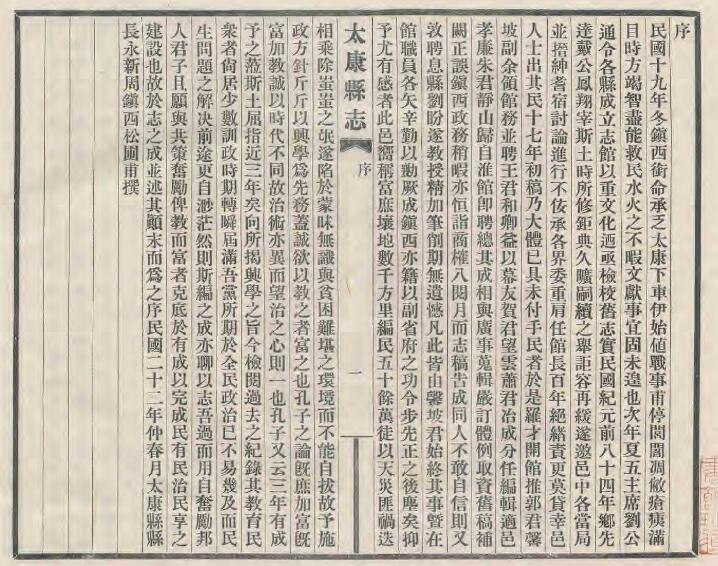 序
民國十九年冬鎭西銜命承乏太康下車伊始値戰事甫停閭閻凋敝瘡痍滿
目時方竭智盡能救民水火之不暇文獻事宜固未遑也次年夏五主席劉公
通令各縣成立志館以重文化迺亟檢校舊志實民國紀元前八十四年鄉先
達戴公鳳翔宰斯土時所修鉅典久曠嗣續之舉詎容再緩遂邀邑中各當局
並搢紳耆宿討論進行不佞承各界委重肩任館長百年絕緒責更莫貸幸邑
人士出其民十七年初稿乃大體已具未付手民者於是羅才開館推郭君馨
坡副余領館務並聘王君和卿益以幕友賀君望雲蕭君冶成分任編輯適邑
孝廉朱君靜山歸自淮館卽聘總其成相與廣事蒐輯嚴訂體例取資舊稿補
闕正誤鎭西政務稍暇亦恒詣商榷八閱月而志稿告成同人不敢自信則又
敦聘息縣劉盼遂教授精加筆削期無遺憾凡此皆由馨坡君始終其事曁在
館職員各矢辛勤以勷厥成鎭西亦藉以副省府之功令步先正之後塵矣抑
予尤有感者此邑嚮稱富庶壤地數千方里編民五十餘萬徒以天災匪禍迭
太康縣志
序
一
相乘除蚩蚩之氓遂陷於蒙昧無識與貧困難堪之環境而不能自拔故予施
政方針斤斤以興學爲先務蓋誠欲以敎之者富之也孔子之論旣庶加富旣
富加敎誠以時代不同故治術亦異而望治之心則一也孔子又云三年有成
予之蒞斯土屈指近三年矣向所揭興學之旨今檢閱過去之紀錄其敎育民
衆者尙居少數訓政時期轉瞬屆滿吾黨所期於全民政治已不易幾及而民
生問題之解決前途更自渺茫然則斯編之成亦聊以志吾過而用自奮勵邦
人君子且願與共策奮勵俾敎而富者克底於有成以完成民有民治民享之
建設也故於志之成並述其顚末而爲之序民國二十二年仲春月太康縣縣
長永新周鎭西松圃甫撰